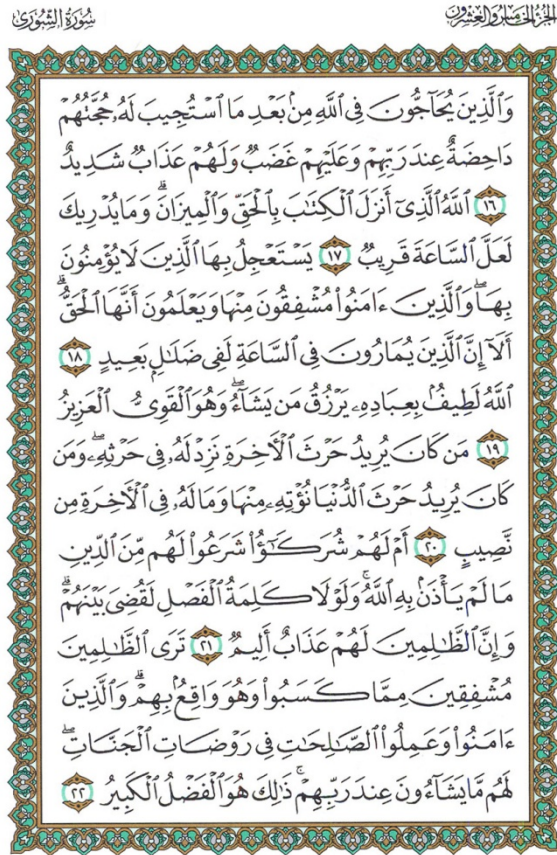 الجزء الخامس والعشرون
سُورَةُ الشُّورَىٰ
وَالَّذِينَ يُحَاجُّونَ فِي اللَّهِ مِنۢ بَعْدِ مَا ٱسْتُجِيبَ لَهُۥ حُجَّتُهُمْ
دَاحِضَةٌ عِندَ رَبِّهِمْ وَعَلَيْهِمْ غَضَبٌ وَلَهُمْ عَذَابٌ شَدِيدٌ
١٦ ٱللَّهُ ٱلَّذِىٓ أَنزَلَ ٱلْكِتَٰبَ بِٱلْحَقِّ وَٱلْمِيزَانَ ۗ وَمَا يُدْرِيكَ
لَعَلَّ ٱلسَّاعَةَ قَرِيبٌ ١٧ يَسْتَعْجِلُ بِهَا ٱلَّذِينَ لَا يُؤْمِنُونَ
بِهَا ۖ وَٱلَّذِينَ ءَامَنُوا۟ مُشْفِقُونَ مِنْهَا وَيَعْلَمُونَ أَنَّهَا ٱلْحَقُّ ۗ
أَلَآ إِنَّ ٱلَّذِينَ يُمَارُونَ فِى ٱلسَّاعَةِ لَفِى ضَلَٰلٍۭ بَعِيدٍ ١٨
ٱللَّهُ لَطِيفٌۢ بِعِبَادِهِۦ يَرْزُقُ مَن يَشَآءُ ۖ وَهُوَ ٱلْقَوِىُّ ٱلْعَزِيزُ
١٩ مَن كَانَ يُرِيدُ حَرْثَ ٱلْءَاخِرَةِ نَزِدْ لَهُۥ فِى حَرْثِهِۦ ۖ وَمَن
كَانَ يُرِيدُ حَرْثَ ٱلدُّنْيَا نُؤْتِهِۦ مِنْهَا وَمَا لَهُۥ فِى ٱلْءَاخِرَةِ مِن
نَّصِيبٍ ٢٠ أَمْ لَهُمْ شُرَكَٰٓؤُا۟ شَرَعُوا۟ لَهُم مِّنَ ٱلدِّينِ
مَا لَمْ يَأْذَنۢ بِهِ ٱللَّهُ ۚ وَلَوْلَا كَلِمَةُ ٱلْفَصْلِ لَقُضِىَ بَيْنَهُمْ ۗ
وَإِنَّ ٱلظَّٰلِمِينَ لَهُمْ عَذَابٌ أَلِيمٌ ٢١ تَرَى ٱلظَّٰلِمِينَ
مُشْفِقِينَ مِمَّا كَسَبُوا۟ وَهُوَ وَاقِعٌۢ بِهِمْ ۗ وَٱلَّذِينَ
ءَامَنُوا۟ وَعَمِلُوا۟ ٱلصَّٰلِحَٰتِ فِى رَوْضَاتِ ٱلْجَنَّاتِ ۖ
لَهُم مَّا يَشَآءُونَ عِندَ رَبِّهِمْ ۚ ذَٰلِكَ هُوَ ٱلْفَضْلُ ٱلْكَبِيرُ ٢٢